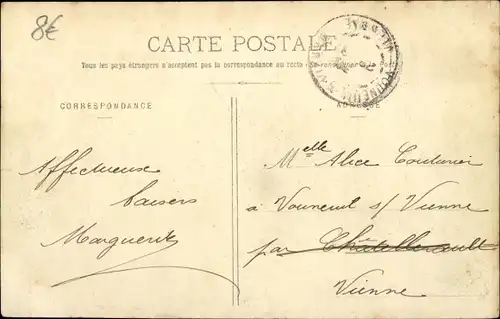 8€
CARTE POSTALE
Tous les pays étrangers n'acceptent pas la correspondance au recto
CORRESPONDANCE
ADRESSE
Affectueux
baisers
Marguerite
Melle Alice Couturier
à Vouneuil s/ Vienne
par Châtellerault
Vienne